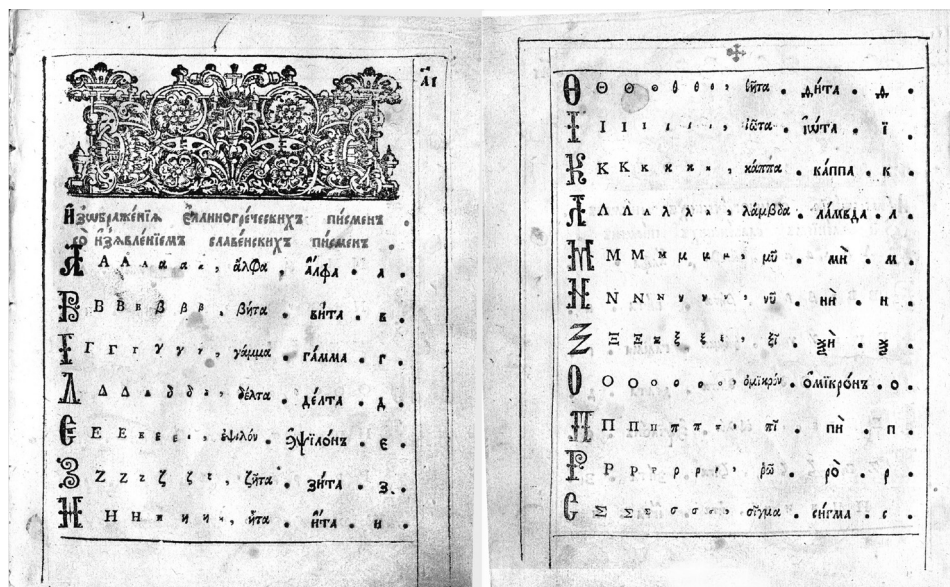 АІ
Изѡбраженїѧ еллиногре́ческихъ пи́сменъ
со из̾ѧвле́нїемъ славе́нскихъ пи́сменъ .
А Α Α α α α , ἄλφα . а҆́лфа . а .
В Β Β β β β β , βῆτα . ви́та . в .
Г Γ Γ Γ γ γ γ , γάμμα . га́мма . г .
Д Δ Δ δ δ δ , δέλτα . де́лта . д .
Є Ε Ε ε ε ε , ἐψιλόν . Эѱїло́нъ . є .
З Ζ Ζ ζ ζ ζ , ζῆτα . зи́та . з .
Н Η Η η η η , ἦτα . и҆́та . и .
Ѳ Θ Θ θ θ θ θ , θῆτα . ѳи́та . ѳ .
І Ι Ι ι ι ι , ἰῶτα . і҆ѡ́та . ї .
К Κ Κ κ κ κ , κάππα . ка́ппа . к .
Л Λ Λ λ λ λ , λάμβδα . ла́мвда . л .
М Μ Μ μ μ μ μ , μῦ . мѝ . м .
Н Ν Ν ν ν ν ν , νῦ . нѝ . н .
Ѯ Ξ Ξ ξ ξ ξ ξ , ξῖ . ѯѝ . ѯ .
О Ο Ο ο ο ο ο , ὀμικρόν . О҆микро́нъ . о .
П Π Π π π π , πῖ . пѝ . п .
Р Ρ Ρ ρ ρ ρ , ῥῶ . рѻ̀ . р .
С Σ Σ Σ σ σ σ , σῖγμα . си́гма . с .